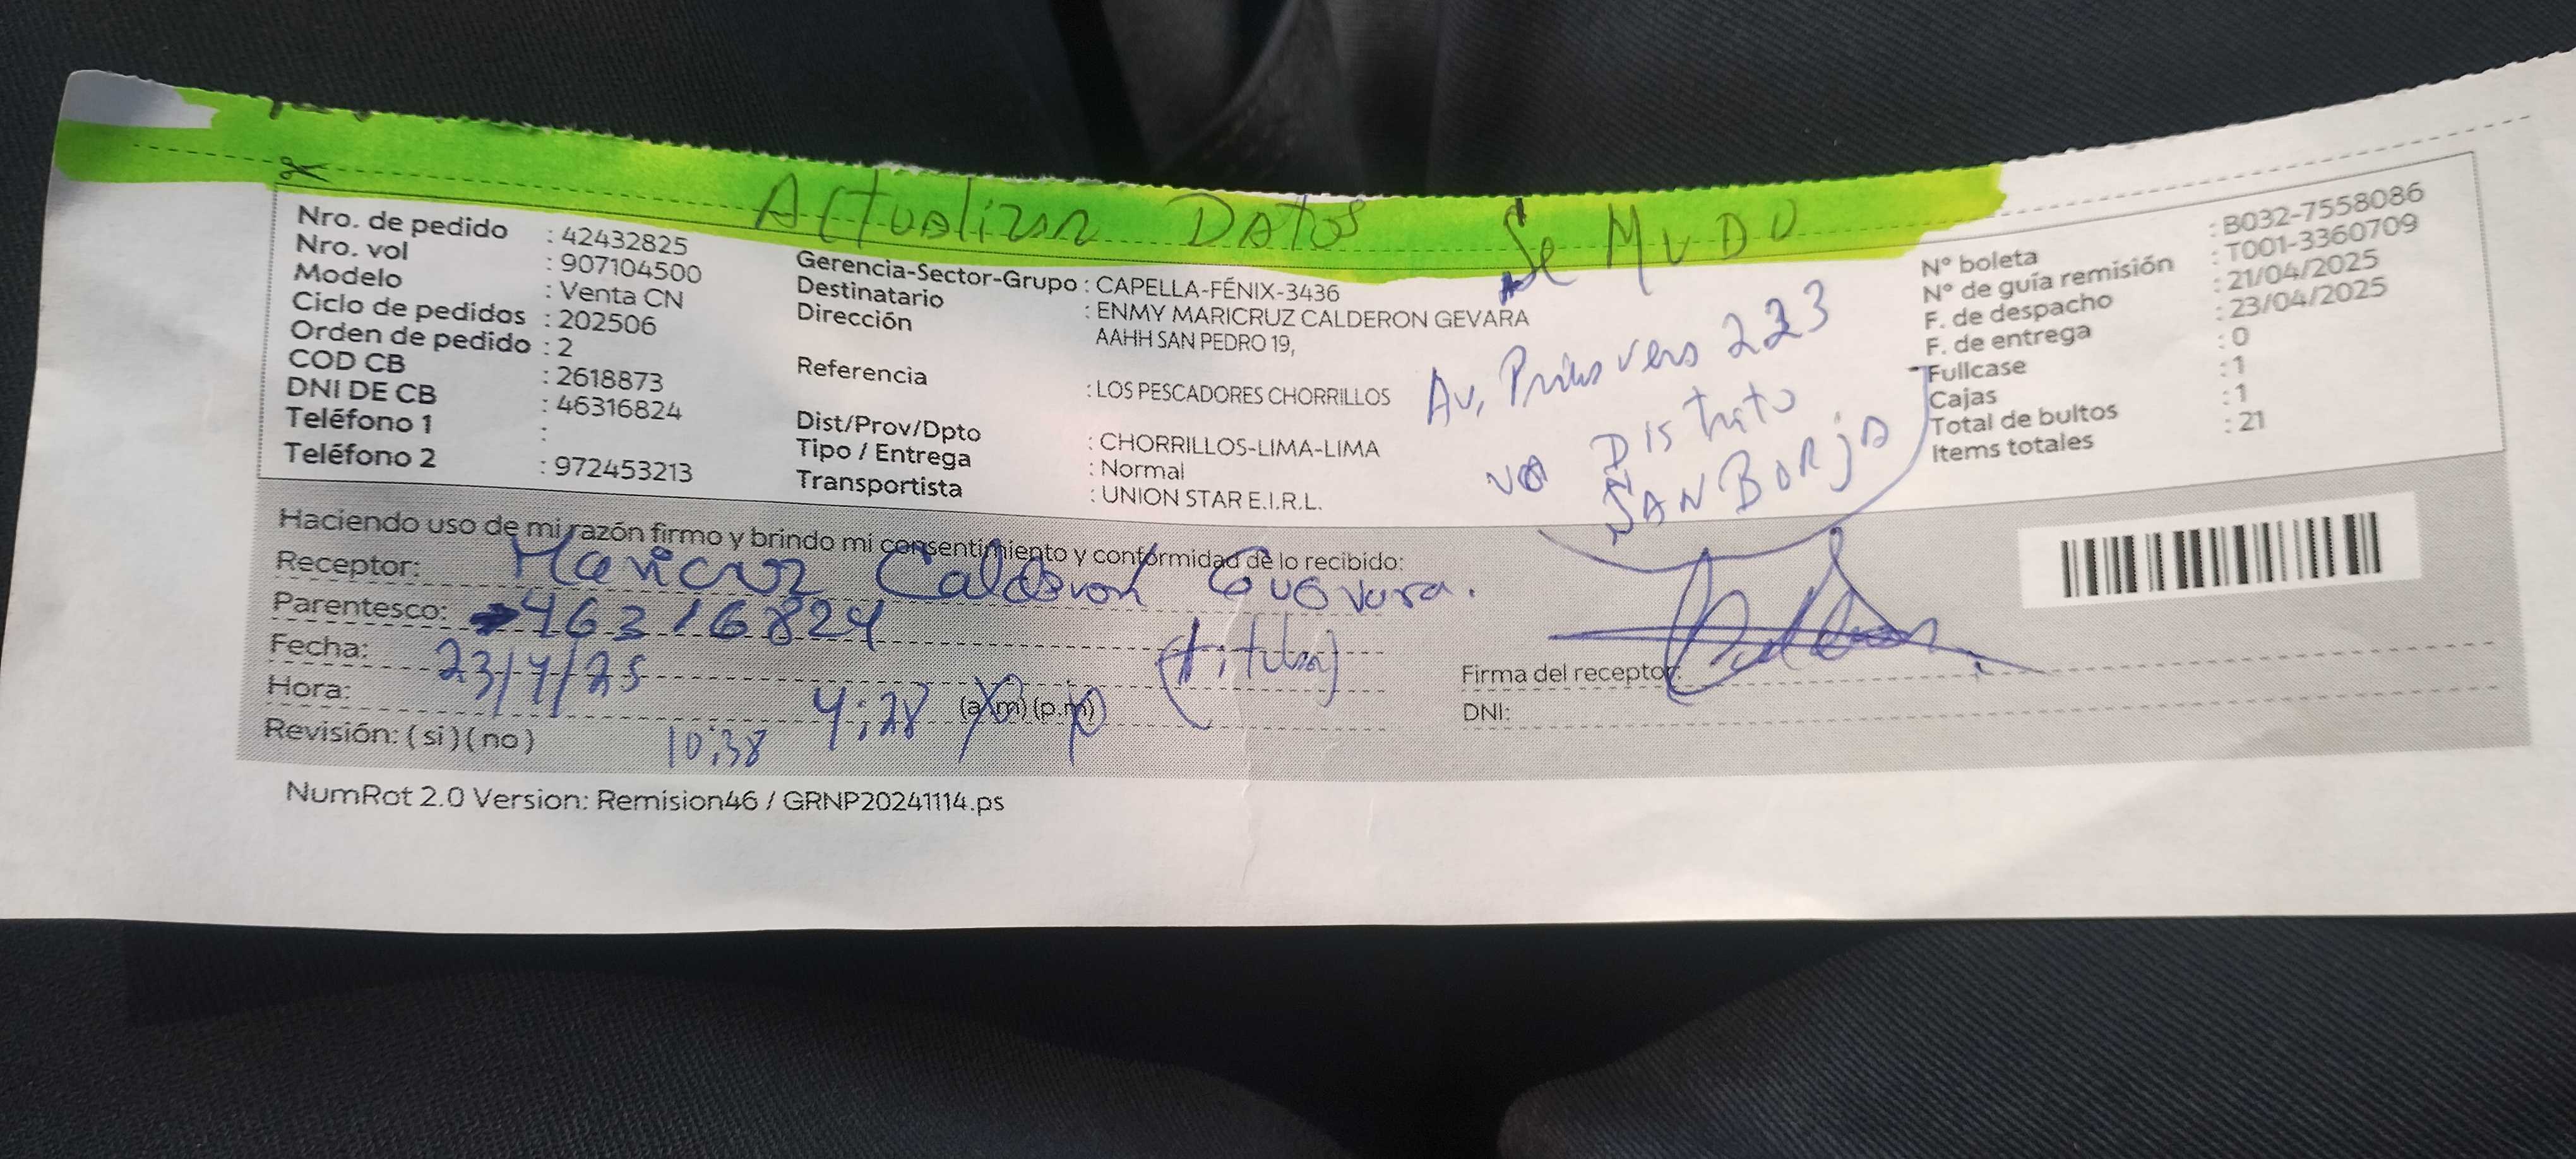 Actualizar Datos Se MUDO
Nro. de pedido : 42432825
Nro. vol : 907104500
Modelo : Venta CN
Ciclo de pedidos : 202506
Orden de pedido : 2
COD CB : 2618873
DNI DE CB : 46316824
Teléfono 1 :
Teléfono 2 : 972453213
Gerencia-Sector-Grupo : CAPELLA-FÉNIX-3436
Destinatario : ENMY MARICRUZ CALDERON GEVARA
Dirección AAHH SAN PEDRO 19,
Referencia : LOS PESCADORES CHORRILLOS
Dist/Prov/Dpto : CHORRILLOS-LIMA-LIMA
Tipo / Entrega : Normal
Transportista : UNION STAR E.I.R.L.
Av. 223
Distrito
SAN BORJA
N° boleta : B032-7558086
N° de guía remisión : T001-3360709
F. de despacho : 21/04/2025
F. de entrega : 23/04/2025
Fullcase : 0
Cajas : 1
Total de bultos : 1
Items totales : 21
Haciendo uso de mi razón firmo y brindo mi consentimiento y conformidad de lo recibido:
Receptor: Maricruz Calderon Guevara.
Parentesco: 46316824 (titular)
Fecha: 23/4/25
Hora: 4:28 (a.m) (p.m)
Revisión: ( si ) ( no ) 10:38
Firma del receptor:
DNI:
NumRot 2.0 Version: Remision46 / GRNP20241114.ps